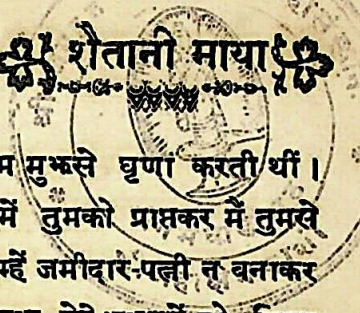 शैतानी माया
मुझसे घृणा करती थीं।
में तुमको प्राप्तकर मैं तुमसे
म्हें जमींदार-पत्नी न बनाकर